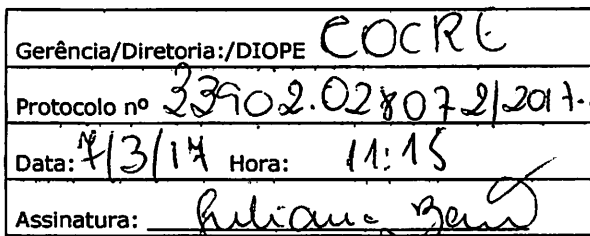 Gerência/Diretoria:/DIOPE COCRE
Protocolo nº 33902.028072/2017-
Data: 7/3/17 Hora: 11:15
Assinatura: Juliana